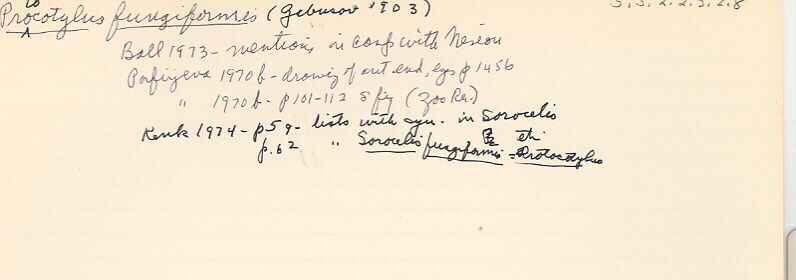 Procotylus fungiformis (Gebusov 1903) 5, 3, 2. 2. 3. 2. 8
to
^
Ball 1973 - mentions in conf with
Porfirjeva 1970 b - drawing of ant end, egs p 1456
" 1970 b - p 101-112 8 fig (Zoo Re.)
Kenk 1974 - p 59 - lists with syn. in Sorocelis
p. 62 " Sorocelis fungiformis = Protocotylus